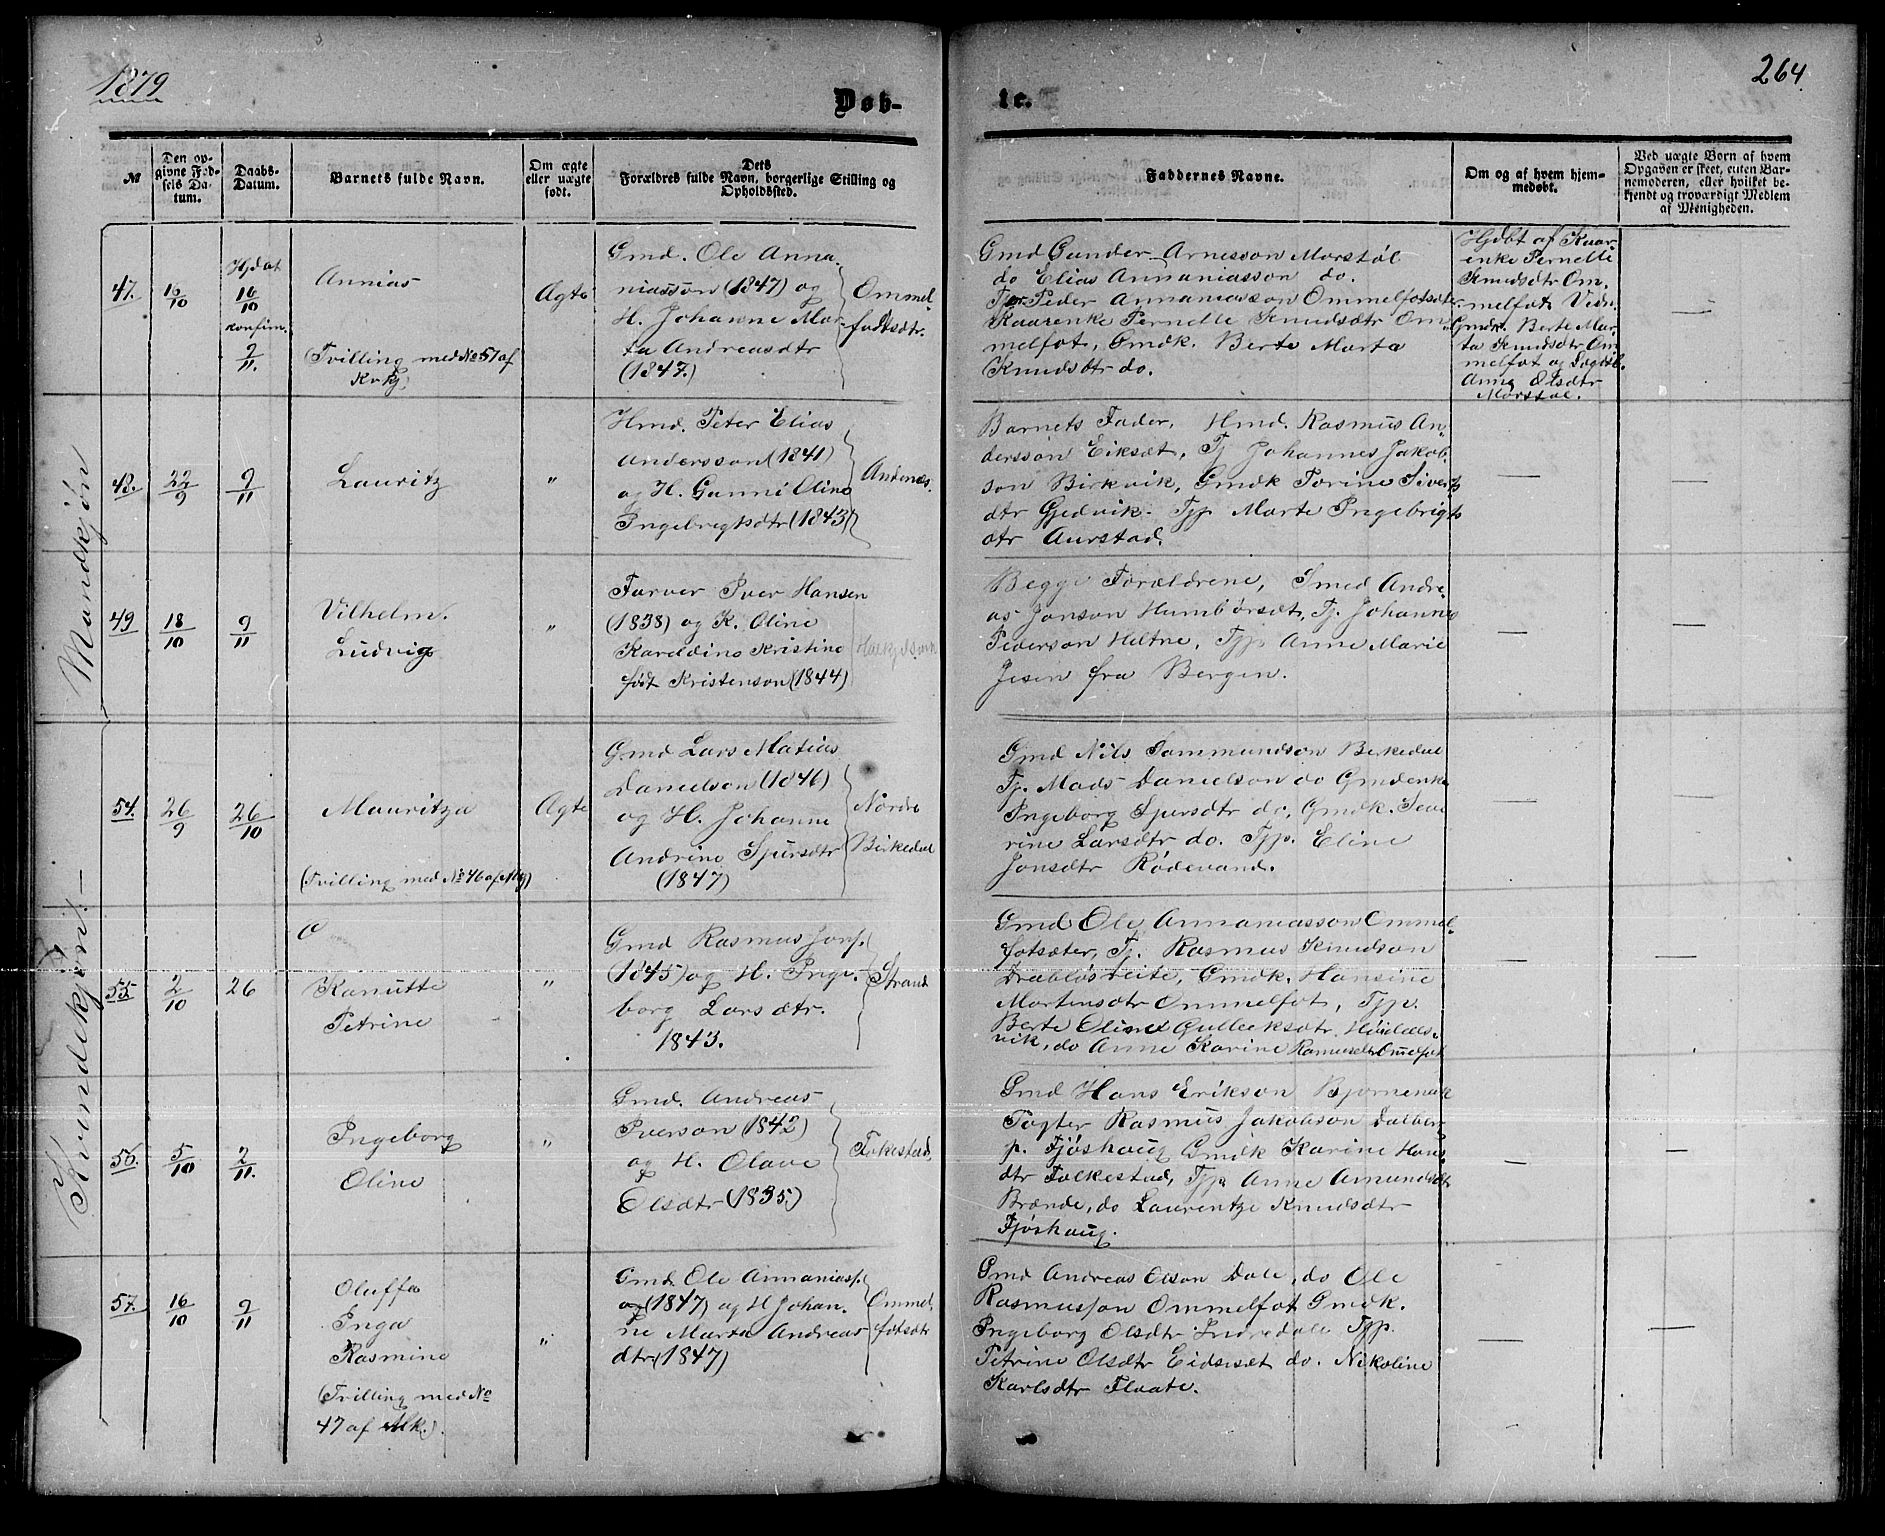 1879
264.
Døb-
te.
№
Den op-
givne Fød-
sels Da-
tum.
Daabs-
Datum.
Barnets fulde Navn.
Om ægte
eller uægte
født.
Dets
Forældres fulde Navn, borgerlige Stilling og
Opholdssted.
Faddernes Navne.
Om og af hvem hjem-
medøbt.
Ved uægte Børn af hvem
Opgaven er skeet, enten Bar-
nemoderen, eller hvilket be-
kjendt og troværdigt Medlem
af Menigheden.
Mandkjøn
47.
16/10
Hjdøt
16/10
konfirm.
9/11.
Annias
(Tvilling med No 57 af
Kvkj)
Ægte
Gmd. Ole Anna-
niasson (1847) og
H. Johanne Mar-
ta Andreasdtr
(1847.)
Ommel-
fodtsætr.
Gmd Gunder Arnesson Morstøl
do Elias Annaniasson do.
Peder Annaniasson Ommelfotsæter
Kaarenke Pernelle Knudsdtr Om-
melfot, Gmdk. Berte Marta
Knudsdtr do.
Hjdbt af Kaar-
enke Pernelle
Knudsdtr Om-
melfot. Vidn.
Gmdk. Berte Mar-
ta Knudsdtr Om
melfot og
Anne Olsdtr
Morstøl.
—
48.
22/9
9/11
Lauritz
"
Hmd. Peter Elias
Andersson (1841)
og H. Gunni Oline
Ingebregtsdtr (1843)
Andenæs.
Barnets Fader, Hmd. Rasmus An-
dersson Eiksæt, Tj Johannes Jakob-
son Birkvik, Gmdk Torine Siverts
dtr Gjedvik. Tjp Marte Ingebrigts
dtr Aurstad.
—
—
49
18/10
9/11
Vilhelm
Ludvig
"
Farver Iver Hansen
(1838) og K. Oline
Kareldine Kristine
født Kristenson (1844)
Begge Forældrene, Smed Andre-
as Jonson Humbørsæt, Tj. Johannes
Pederson Heltne, Tjp Anne Marie
Jesen fra Bergen.
—
—
Kvindekjøn. —
54.
26/9
26/10
Mauritza
(Tvilling med No 46 af Mkj)
Ægte
Gmd Lars Matias
Danielson (1846)
og H. Johanne
Andrine Spersdtr
(1847)
Nordre
Birkedal
Gmd Nils Sammundson Birkedal
Tj. Mads Danielson do Gmdenke
Ingeborg Spersdtr do, Gmdk. Seve
rine Larsdtr do. Tjp. Eline
Jonsdtr Rødevand.
—
—
55.
2/10
26
Kanutte
Petrine
"
Gmd Rasmus Jons.
(1845) og H. Inge-
borg Larsdtr.
1843.
Strand
Gmd Ole Annaniasson Ommel-
fotsæter, Tj. Rasmus Knudson
Drabløsreite, Gmdk. Hansine
Martensdtr Ommelfot, Tjp.
Berte Oline Gulleiksdtr Høidals-
vik, do Anne Karine Rasmusdtr Omelfot
—
—
56.
5/10
2/11.
Ingeborg
Oline
"
Gmd. Andreas
Iverson (1842)
og H. Olave
Olsdtr (1835)
Folkestad,
Gmd Hans Erikson Bjørnenak
Fogter Rasmus Jakobson Dalber
p. Fjøshaug Gmdk Karine Hans
dtr Folkestad, Tjp Anne Amundsdtr
Brænde, do Laurentze Knudsdtr
Fjøshaug.
—
—
57.
16/10
9/11
Oluffa
Inga
Rasmine
(Tvilling med No
47 af Mk.)
"
Gmd. Ole Annanias.
og (1847) og H Johan-
ne Marta Andreas
dtr (1847)
Ommel-
fotsdtr
Gmd Andreas Olson Dale, do Ole
Rasmusson Ommelfot Gmdk.
Ingeborg Olsdtr Indredale Tjp.
Petrine Olsdtr Eidseset do. Nikoline
Karlsdtr Flaate.
—
—